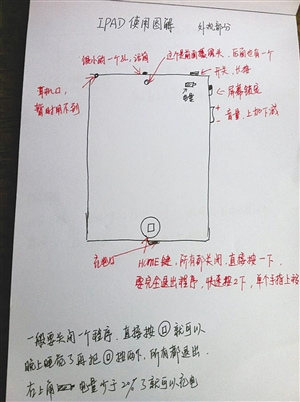 IPAD 使用图解 外观部分
很小的一个孔,话筒
这个是前面摄像头,后面也有一个
开关,长按
耳机口,
暂时用不到
电量
屏幕锁定
+
音量,上加下减
-
充电口
HOME键,所有都关闭,直接按一下,
要完全退出程序,快速按2下,单个手指上移
一般要关闭一个程序,直接按 口 就可以
晚上睡觉了再把 口 按两下,所有都退出.
右上角 电量少于20%了就可以充电